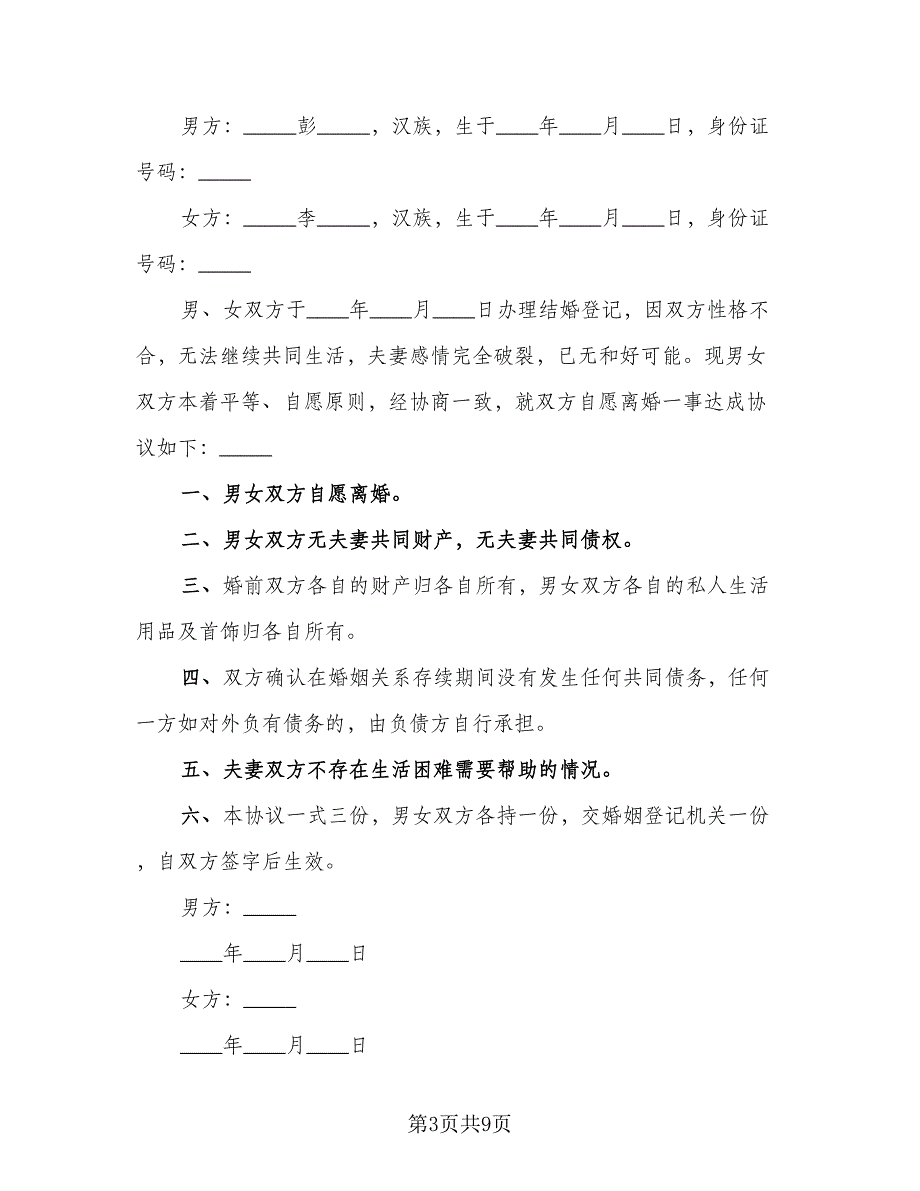 男方：_____彭_____，汉族，生于____年____月____日，身份证
号码：_____
女方：_____李_____，汉族，生于____年____月____日，身份证
号码：_____
男、女双方于____年____月____日办理结婚登记，因双方性格不
合，无法继续共同生活，夫妻感情完全破裂，已无和好可能。现男女
双方本着平等、自愿原则，经协商一致，就双方自愿离婚一事达成协
议如下：_____
一、男女双方自愿离婚。
二、男女双方无夫妻共同财产，无夫妻共同债权。
三、婚前双方各自的财产归各自所有，男女双方各自的私人生活
用品及首饰归各自所有。
四、双方确认在婚姻关系存续期间没有发生任何共同债务，任何
一方如对外负有债务的，由负债方自行承担。
五、夫妻双方不存在生活困难需要帮助的情况。
六、本协议一式三份，男女双方各持一份，交婚姻登记机关一份
，自双方签字后生效。
男方：_____
____年____月____日
女方：_____
____年____月____日
第3页共9页